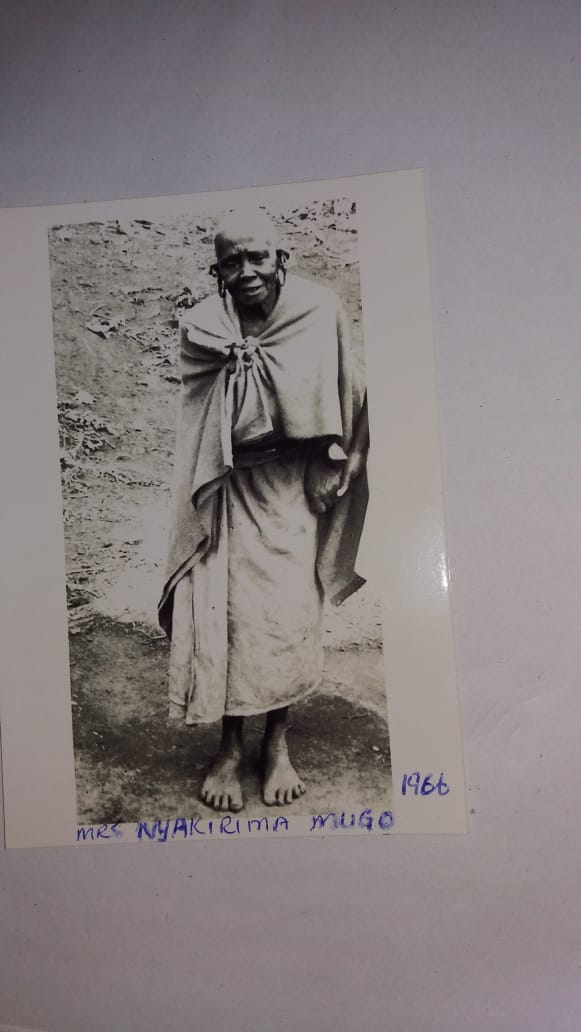 1966
MRS NYAKIRIMA MUGO